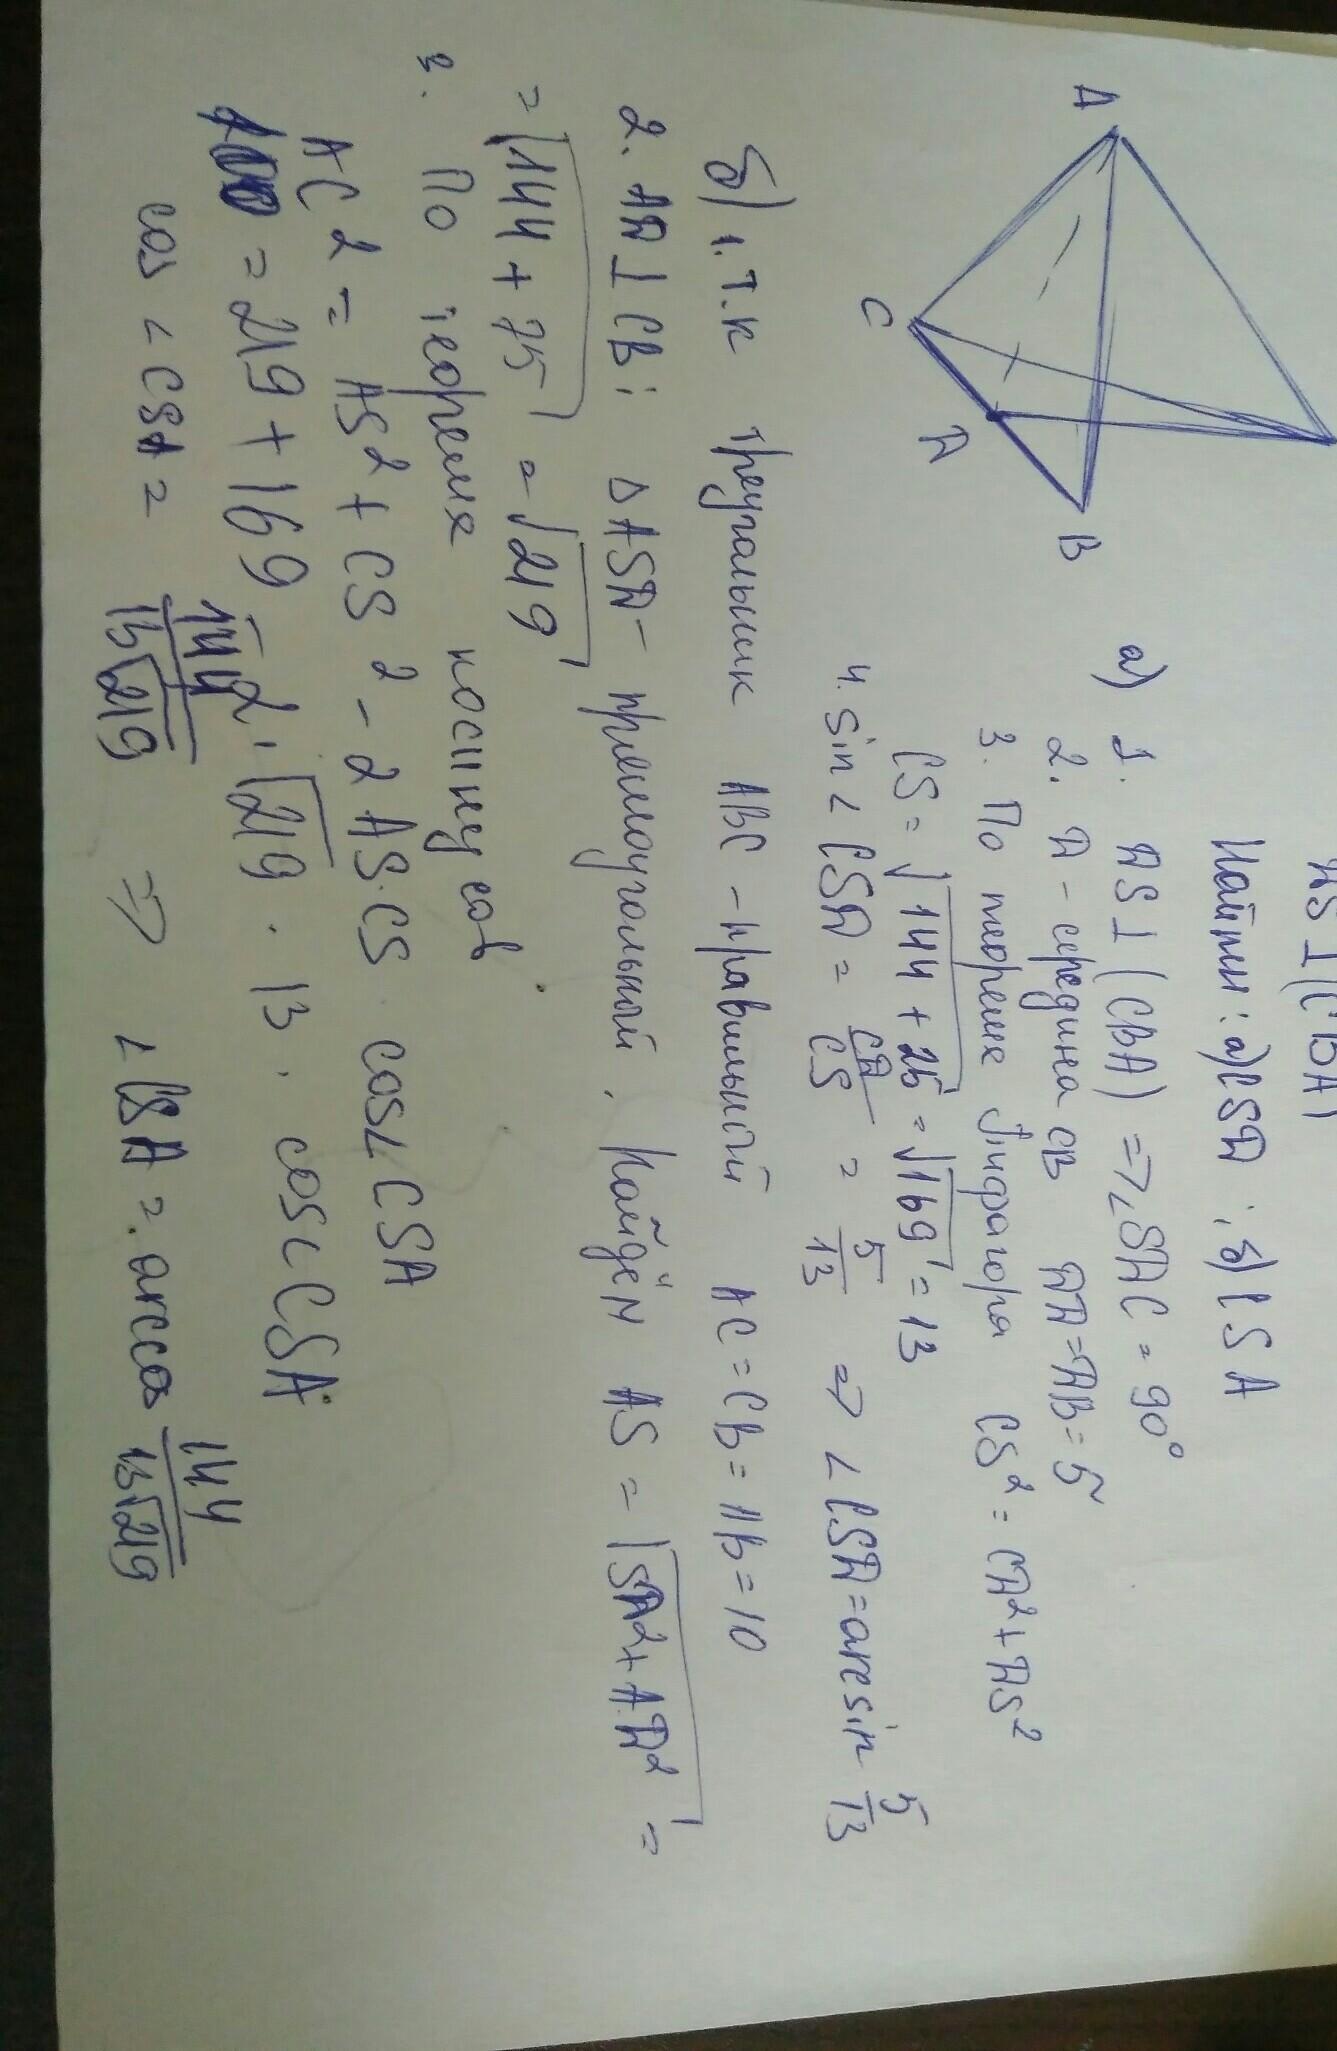 ДS ⊥ (CBA)
Найти: а) CSД ; б) CSA
A
C
Д
B
а) 1. ДS ⊥ (CBA) => ∠SДC = 90°
2. Д - середина CB ДД = ДB = 5
3. По теореме Пифагора CS² = CД² + ДS²
CS = √144 + 25 = √169 = 13
4. sin ∠ CSД = CД/CS = 5/13 => ∠ CSД = arcsin 5/13
б) 1. т.к треугольник ABC - правильный AC = CB = AB = 10
2. AД ⊥ CB; Δ ASД - прямоугольный. Найдём AS = √SД² + AД² =
= √144 + 75 = √219
3. По теореме косинусов
AC² = AS² + CS² - 2 AS · CS · cos∠ CSA
= 219 + 169 - 2 · √219 · 13 · cos∠ CSA
cos ∠ CSA = 144/13√219 => ∠ CSA = arccos 144/13√219